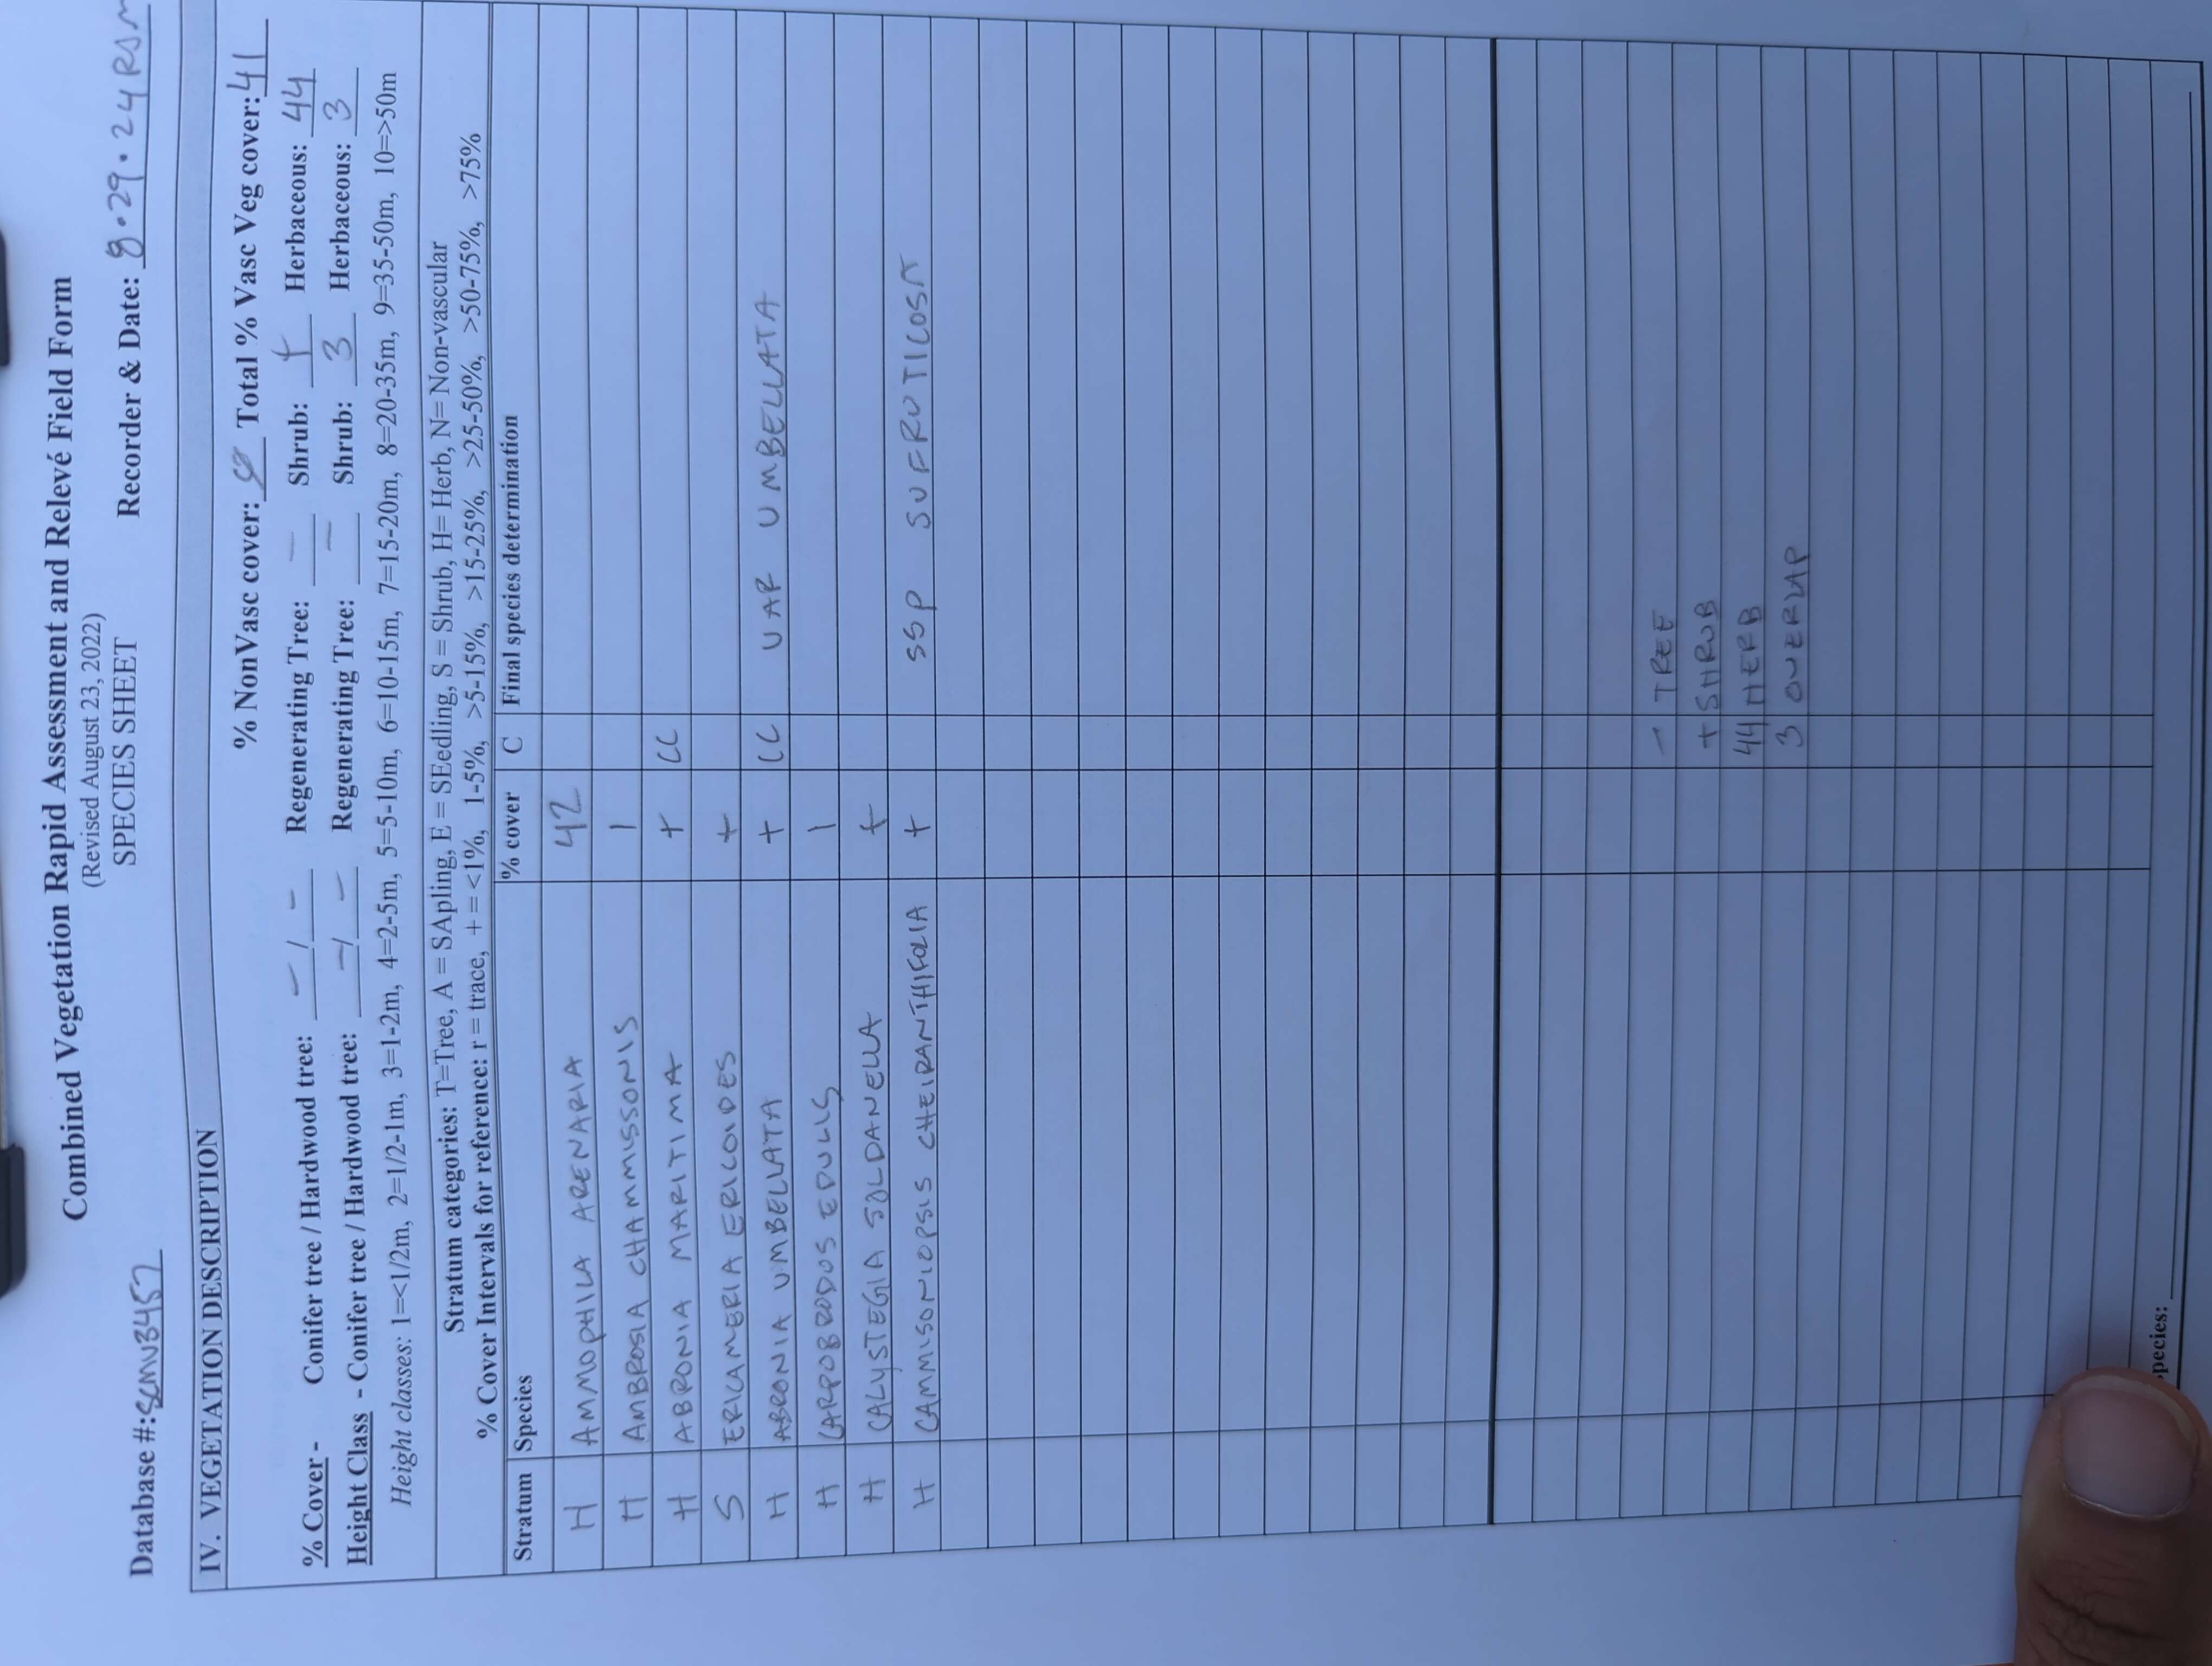 Combined Vegetation Rapid Assessment and Relevé Field Form
(Revised August 23, 2022)
SPECIES SHEET
Database #: SCMV3457 Recorder & Date: 8.29.24 RSM
IV. VEGETATION DESCRIPTION
% NonVasc cover: Ø Total % Vasc Veg cover: 41
% Cover - Conifer tree / Hardwood tree: - / - Regenerating Tree: - Shrub: + Herbaceous: 44
Height Class - Conifer tree / Hardwood tree: - / - Regenerating Tree: - Shrub: 3 Herbaceous: 3
Height classes: 1=<1/2m, 2=1/2-1m, 3=1-2m, 4=2-5m, 5=5-10m, 6=10-15m, 7=15-20m, 8=20-35m, 9=35-50m, 10=>50m
Stratum categories: T=Tree, A = SApling, E = SEedling, S = Shrub, H= Herb, N= Non-vascular
% Cover Intervals for reference: r = trace, + = <1%, 1-5%, >5-15%, >15-25%, >25-50%, >50-75%, >75%
Stratum Species % cover C Final species determination
H AMMOPHILA ARENARIA 42
H AMBROSIA CHAMMISSONIS 1
H ABRONIA MARITIMA + CC
S ERICAMERIA ERICOIDES +
H ABRONIA UMBELLATA + CC VAR UMBELLATA
H CARPOBRODOS EDULIS 1
H CALYSTEGIA SOLDANELLA +
H CAMMISONIOPSIS CHEIRANTHIFOLIA + SSP SUFFRUTICOSA
- TREE
+ SHRUB
44 HERB
3 OVERLAP
pecies: